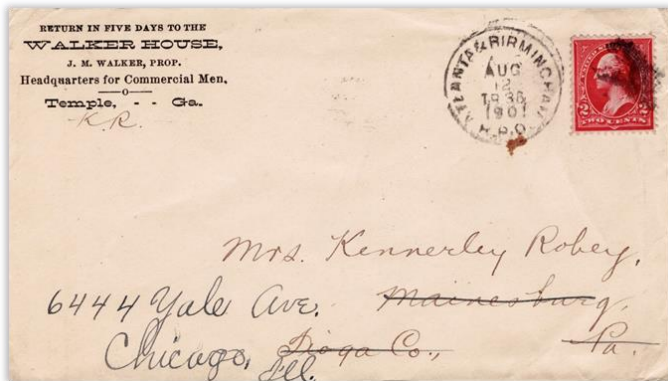 RETURN IN FIVE DAYS TO THE
WALKER HOUSE,
J. M. WALKER, PROP.
Headquarters for Commercial Men,
—o—
Temple, - - Ga.
K.R.
ATLANTA & BIRMINGHAM
AUG
12
TR 36
1901
R.P.O.
2 2
TWO CENTS
Mrs. Kennerley Robey,
6444 Yale Ave. Mainesburg,
Chicago, Tioga Co., Pa.
Ill.